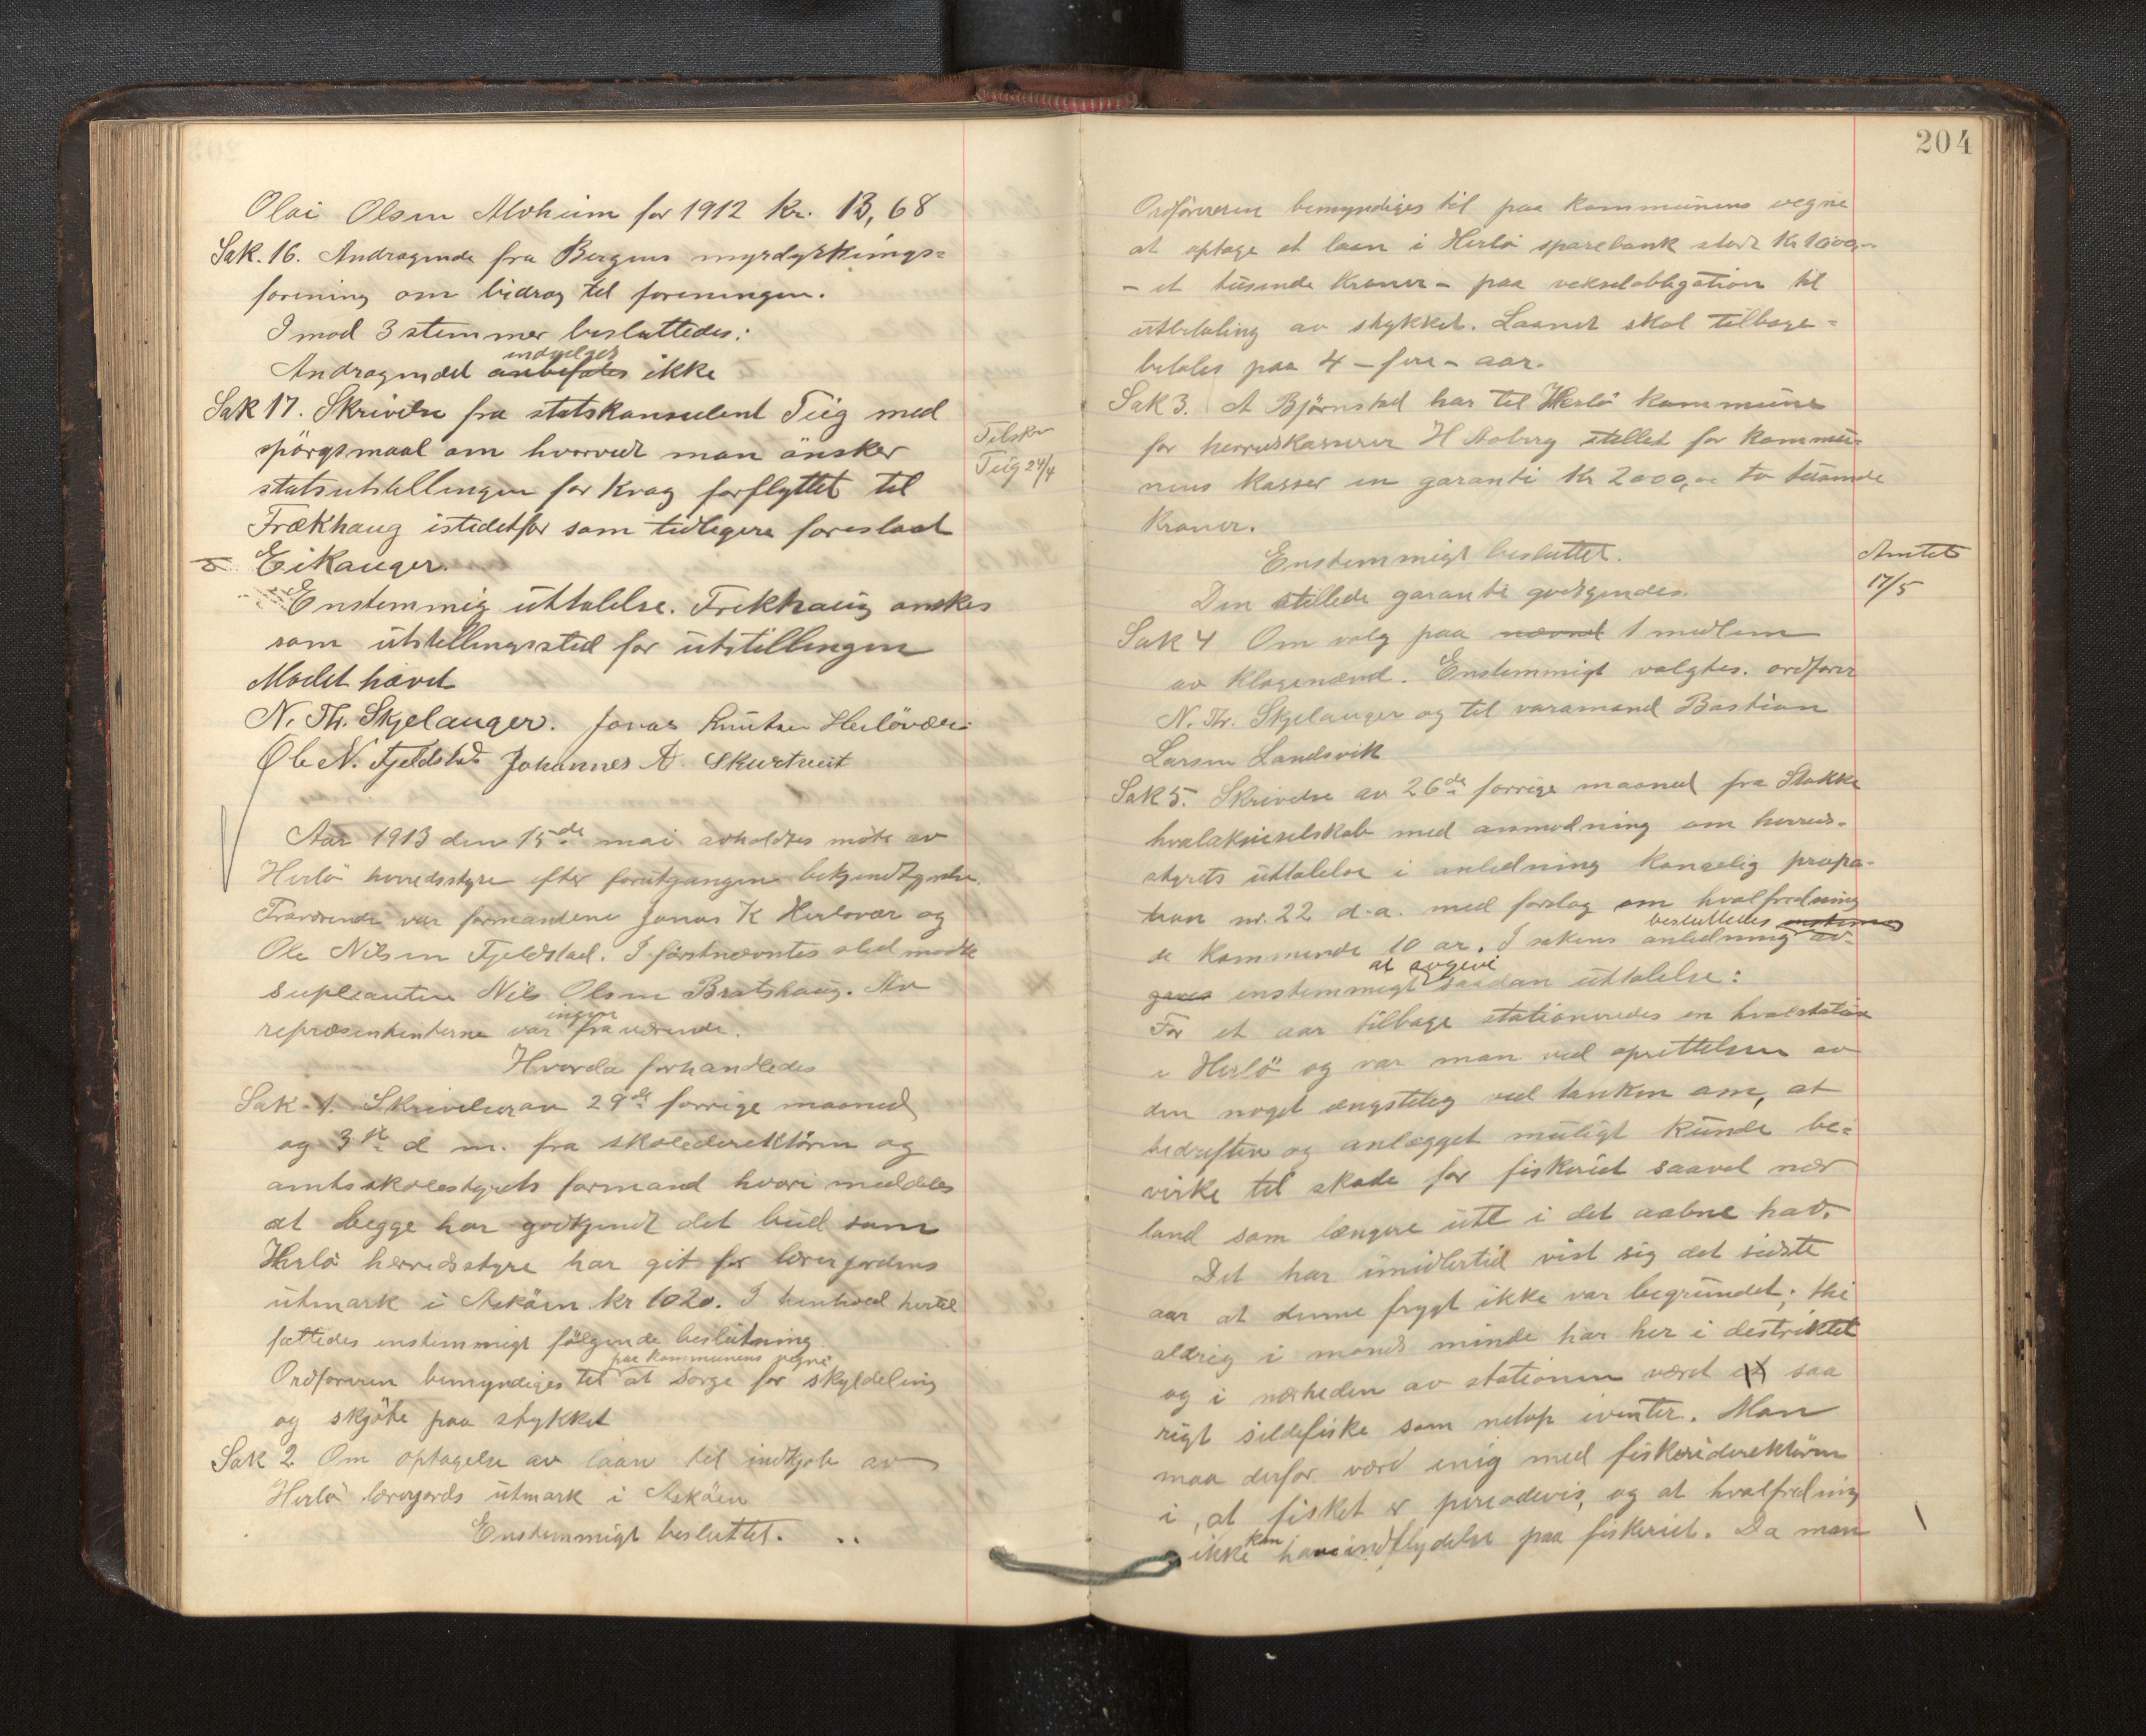 Olai Olsen Alvheim for 1912 Kr. 13,68
Sak. 16. Andragende fra Bergens myrdyrknings=
forening om bidrag til foreningen.
Imod 3 stemmer besluttedes:
indvilges
Andragendet anbefales ikke
Sak 17. Skrivelse fra statskonsulent Teig med
spörgsmaal om hvorvidt man önsker
statsutstillingen for kvæg forflyttet til
Frækhaug istedetfor som tidligere foreslaat
Eikanger.
Enstemmig uttalelse. Frekhaug ønskes
som utstillingssted for utstillingen
Mödet hævet
N. Th. Skjelanger. Jonas Knutsen Herlövær.
Ole N. Fjeldstad Johannes A. Skurtveit
Tilskr
Teig 24/4
Aar 1913 den 15de mai avholdtes möte av
Herlö herredsstyre efter forutgangen bekjendtgjørelse.
Fraværende var formændene Jonas K Herlövær og
Ole Nilsen Fjeldstad. I förstnævntes sted mødte
supleanten Nils Olsen Bratshaug. Av
ingen
repræsentanterne var fraværende.
Hvorda forhandledes
Sak 1. Skrivelser av 29de forrige maaned
og 3die d m. fra skoledirektören og
amtsskolestyrets formand hvori meddeles
at begge har godkjendt det bud som
Herlö herredsstyre har git for lærerjordens
utmark i Asköen kr 1020. I henhold hertil
fattedes enstemmigt fölgende beslutning
paa kommunens vegne
Ordföreren bemyndiges til at sörge for skyldeling
og skjöte paa stykket
Sak 2. Om optagelse av laan til indkjøb av
Herlö lærerjords utmark i Asköen
Enstemmigt besluttet.
204
Ordföreren bemyndiges til paa kommunens vegne
at optage et laan i Herlö sparebank stort Kr 1000,-
- et tusende kroner - paa vekselobligation til
utbetaling av stykket. Laanet skal tilbage=
betales paa 4 - fire - aar.
Sak 3. A Björnstad har til Herlö kommune
for herredskasserer H Aaberg stillet for kommu=
nens kasser en garanti Kr 2000,00 to tusende
kroner.
Enstemmigt besluttet.
Den stillede garanti godkjendes.
Amtet
17/5
Sak 4 Om valg paa nævnd 1 medlem
av klagenævnd. Enstemmigt valgtes. ordfører
N. Th. Skjelanger og til varamand Bastian
Larsen Landsvik
Sak 5. Skrivelse av 26de forrige maaned fra Stokke
hvalaktieselskab med anmodning om herreds=
styrets uttalelse i anledning kongelig propo=
tion nr. 22 d.a. med forslag om hvalfredning
besluttedes enstemmig
de kommende 10 ar. I sakens anledning av=
at avgive
gaves enstemmigt saadan uttalelse:
For et aar tilbage stationeredes en hvalstation
i Herlö og var man ved oprettelsen av
den noget ængstelig ved tanken om, at
bedriften og anlægget muligt kunde be=
virke til skade for fiskeriet saavel nær
land som længere ute i det aabne hav.
Det har imidlertid vist sig det sidste
aar at denne frygt ikke var begrundet; thi
aldrig i mands minde har her i destriktet
og i nærheden av stationen været et saa
rigt sildefiske som netop ivinter. Man
maa derfor være enig med fiskeridirektören
i, at fisket er periodevis, og at hvalfredning
kan
ikke have indflydelse paa fiskeriet. Da man